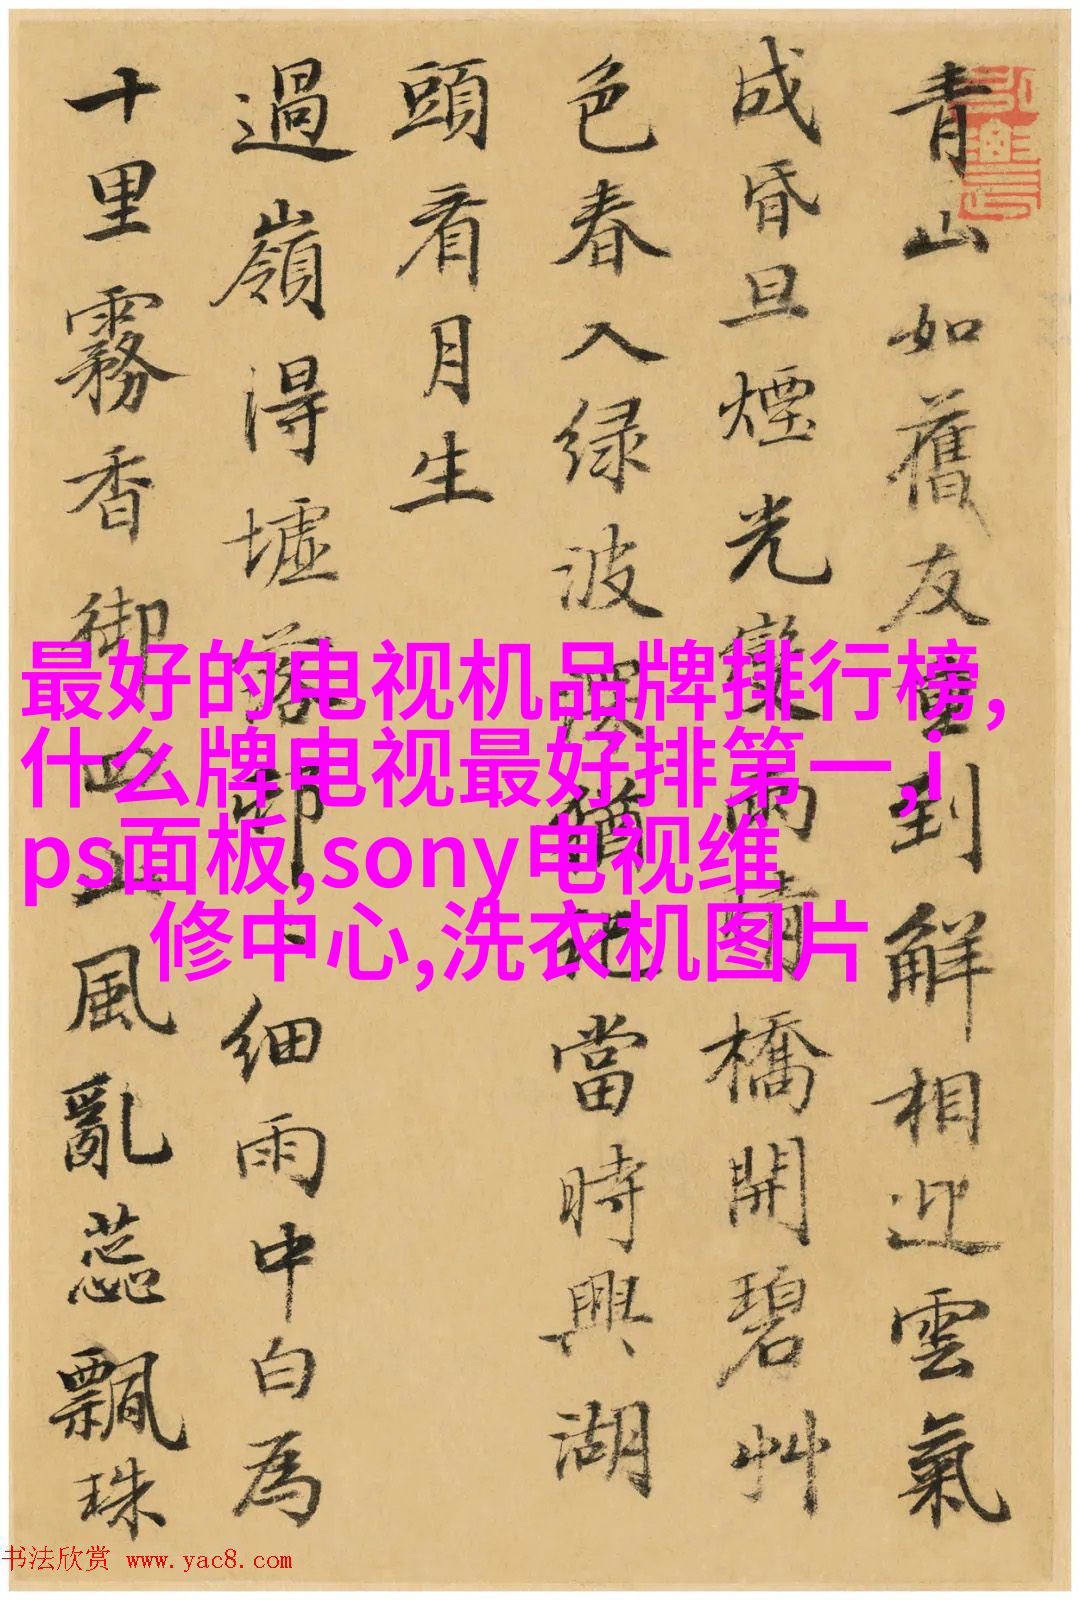 青山如舊友重到解相迎雲氣
成昏旦煙光變雨晴橋開碧艸
色春入绿波深猶記當時興湖
頭看月生
過嶺得墟落邨、細雨中白為
十里霧香御四山風亂蕊飄珠
最好的电视机品牌排行榜,
什么牌电视最好排第一,i
ps面板,sony电视维
修中心,洗衣机图片
书法欣赏 www.yac8.com